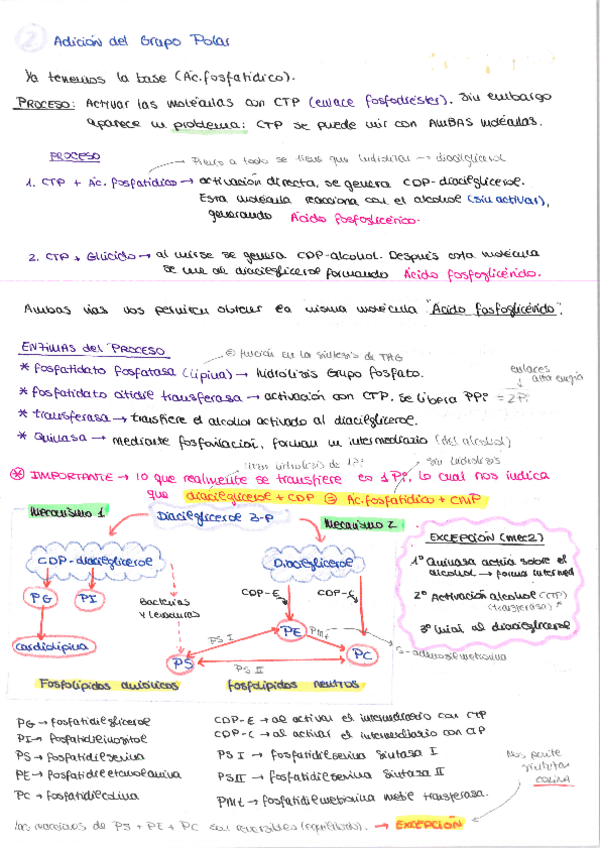 2 Adición del Grupo Polar
Ya tenemos la base (Ác.fosfatídico).
PROCESO: Activar las moléculas con CTP (enlace fosfodiéster). Sin embargo
aparece un problema: CTP se puede unir con AMBAS moléculas.
PROCESO
Previo a todo se tiene que hidrolizar → diacilglicerol
1. CTP + Ác. fosfatídico → activación directa, se genera CDP-diacilglicerol.
Esta molécula reacciona con el alcohol (sin activar),
generando Ácido fosfoglicérico.
2. CTP + Glúcido → al unirse se genera CDP-alcohol. Después esta molécula
se une al diacilglicerol formando Ácido fosfoglicérido.
Ambas vías nos permiten obtener la misma molécula "Ácido fosfoglicérido".
ENZIMAS del PROCESO
función en la síntesis de TAG
* fosfatidato fosfatasa (lipina) → hidrólisis grupo fosfato.
enlaces
alta energía
* fosfatidato citidil transferasa → activación con CTP. Se libera PPi = 2Pi
* transferasa → transfiere el alcohol activado al diacilglicerol.
* Quinasa → mediante fosforilación, forman un intermediario (del alcohol)
* IMPORTANTE → lo que realmente se transfiere es 1Pi, lo cual nos indica
hidrólisis de 1Pi
sin hidrólisis
que diacilglicerol + CDP = Ác.fosfatídico + CMP
Mecanismo 1
Diacilglicerol 3-P
Mecanismo 2
CDP-diacilglicerol
Diacilglicerol
PG
PI
Bacterias
y levaduras
CDP-E
CDP-C
PE
PMt
PS I
cardiolipina
PS
PS II
PC
S-adenosilmetionina
Fosfolípidos aniónicos
fosfolípidos neutros
EXCEPCIÓN (mec2)
1º Quinasa actúa sobre el
alcohol → forma intermed
2º Activación alcohol (CTP)
(transferasa)*
3º Unión al diacilglicerol
PG → fosfatidilglicerol
CDP-E → al activar el intermediario con CTP
PI → fosfatidilinositol
CDP-C → al activar el intermediario con CTP
PS → fosfatidilserina
PS I → fosfatidilserina Sintasa I
PE → fosfatidiletanolamina
PSII → fosfatidilserina Sintasa II
PC → fosfatidilcolina
PMt → fosfatidilmetionina metil transferasa.
Nos permite
sintetizar
COLINA
las reacciones de PS + PE + PC son reversibles (equilibrado). → EXCEPCIÓN